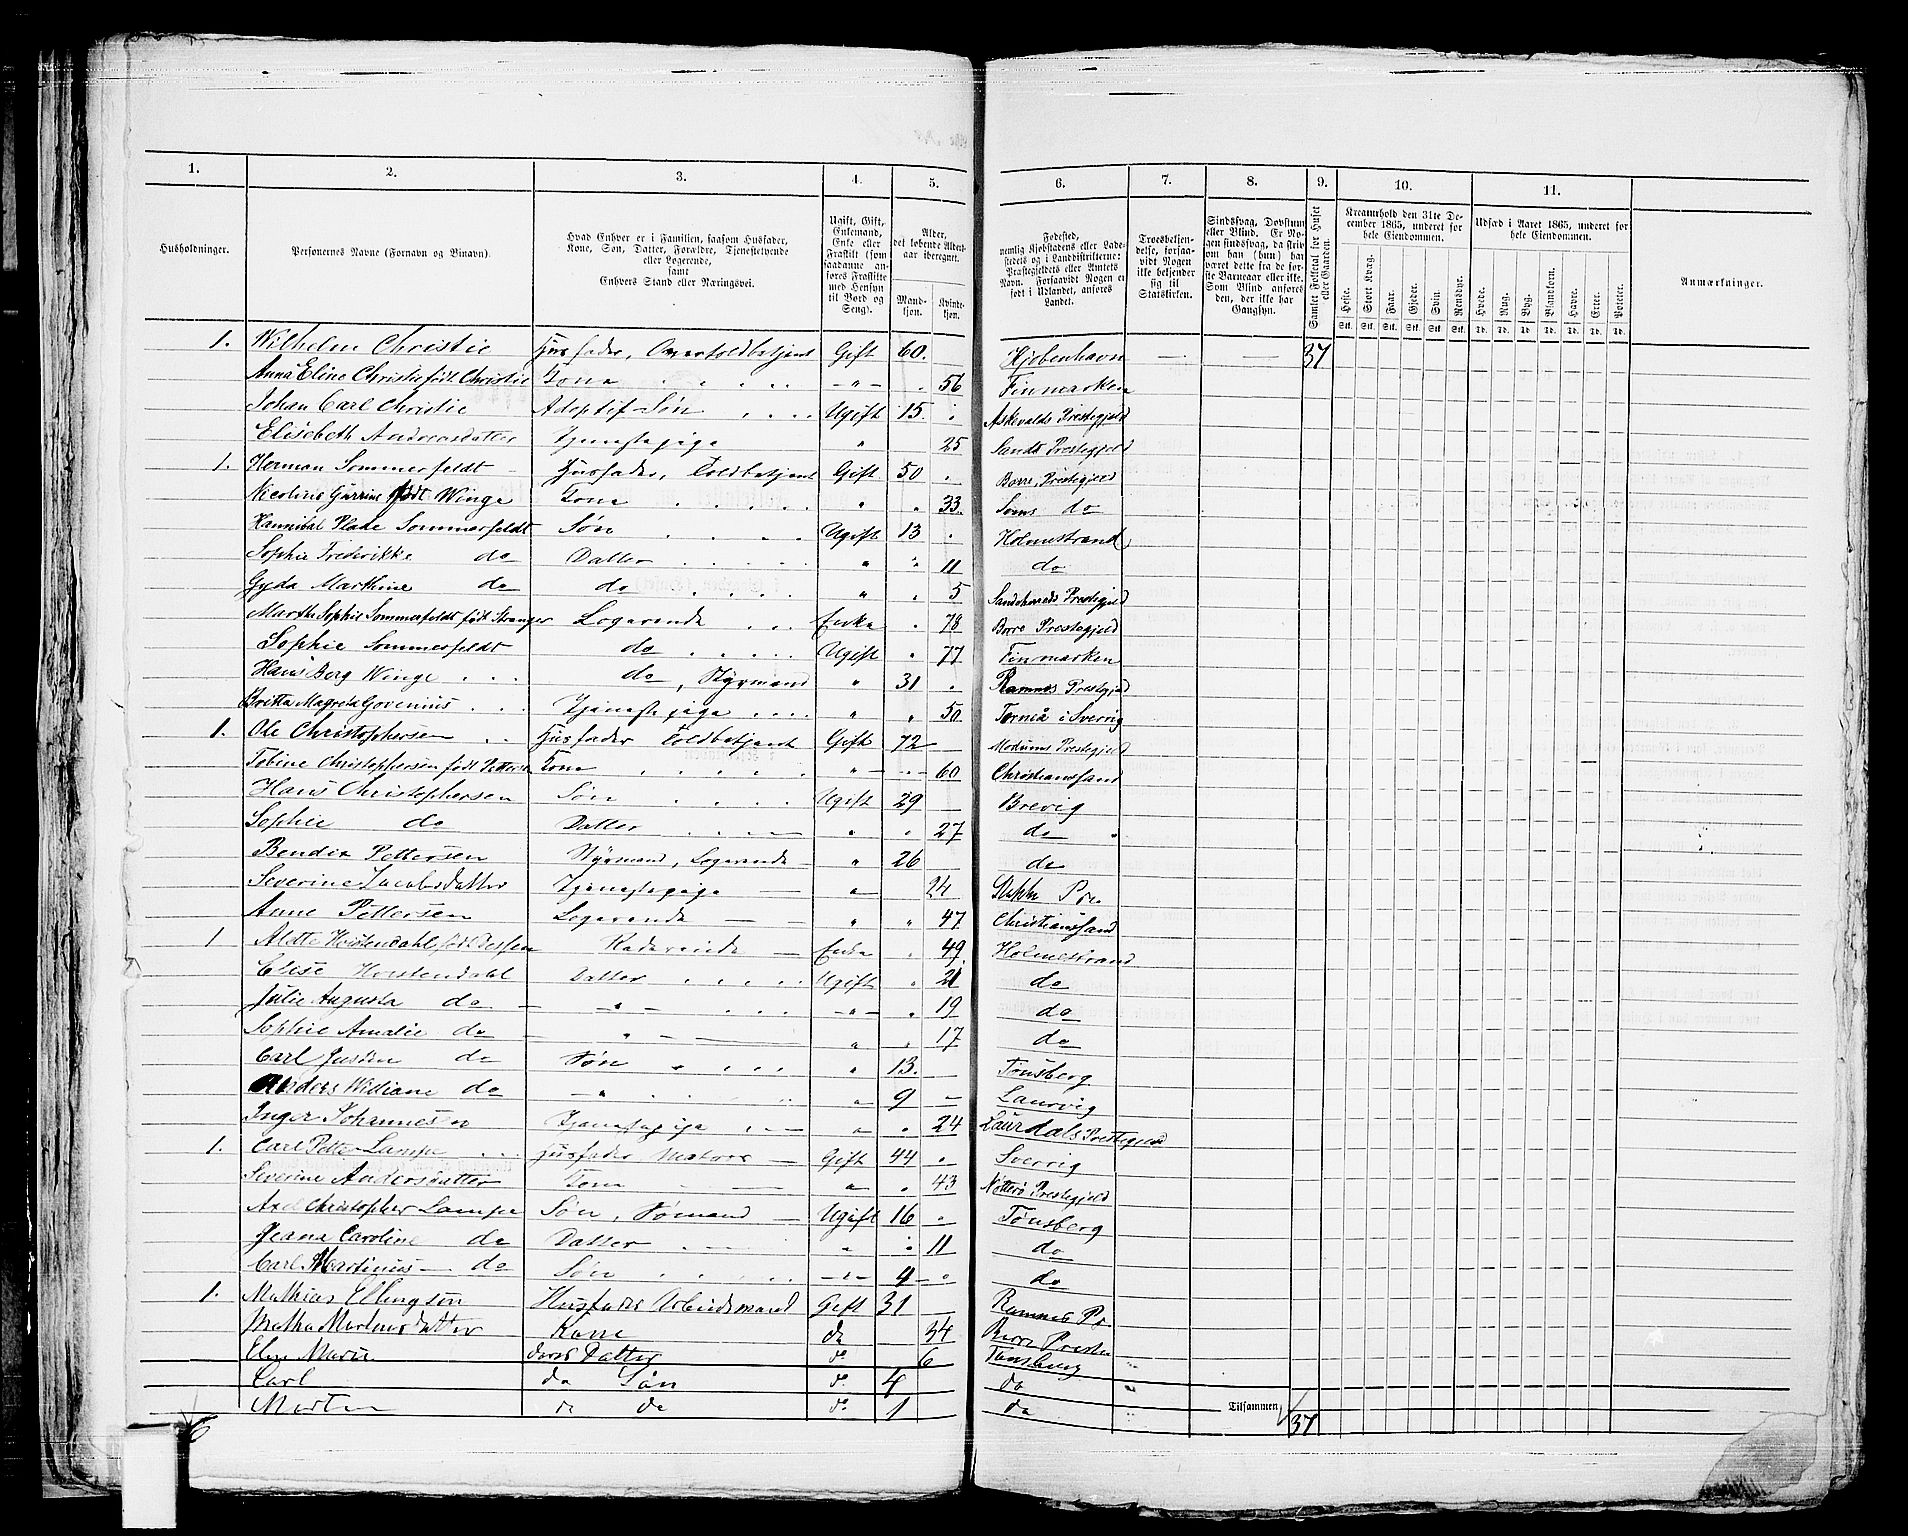 1. 2. 3. 4. 5. 6. 7. 8. 9. 10. 11.
Husholdninger.
Personernes Navne (Fornavn og Binavn).
Hvad Enhver er i Familien, saasom Husfader, Kone, Søn, Datter, Forældre, Tjenestetyende eller Logerende, samt Enhvers Stand eller Næringsvei.
Ugift, Gift, Enkemand, Enke eller Fraskilt (som saadanne anføres Fraskilte med Hensyn til Bord og Seng).
Alder, det løbende Aldersaar iberegnet.
Mandkjøn. Kvindekjøn.
Fødested, nemlig Kjøbstadens eller Ladestedets og i Landdistrikterne: Præstegjeldets eller Amtets Navn. Forsaavidt Nogen er født i Udlandet, anføres Landet.
Troesbekjendelse, forsaavidt Nogen ikke bekjender sig til Statskirken.
Sindssvag, Døvstum eller Blind. Er Nogen sindssvag, da skrives om han (hun) har været dette fra de første Barneaar eller ikke. Som Blind anføres den, der ikke har Gangsyn.
Samlet Folketal for Huset eller Gaarden.
Kreaturhold den 31te December 1865, underet for hele Eiendommen.
Heste. Stort Kvæg. Faar. Gjeder. Svin. Rensdyr.
Udsæd i Aaret 1865, underet for hele Eiendommen.
Hvede. Rug. Byg. Blandkorn. Havre. Erter. Poteter.
Anmærkninger.
Stk. Stk. Stk. Stk. Stk. Stk. Td. Td. Td. Td. Td. Td. Td.
1. Wilhelm Christie Husfader, Overtoldbetjent Gift 60. Kjøbenhavn — — 37
Anna Eline Christie født Christie Kone " 56 Finmarken
Johan Carl Christie Adoptif Søn Ugift 15. Askevolds Prestegjeld
Elisebeth Andreasdatter Tjenestepige " 25 Sande Prestegjeld
1. Herman Sommerfeldt Husfader, Toldbetjent Gift 50 Borre Prestegjeld
Nicoline født Winge Kone " 33. Sems do
Hannibal Sommerfeldt Søn Ugift 13 Holmestrand
Sophie Frederikke do Datter " 11 do
Gyda Marthine do do " 5 Sandeherreds Prestegjeld
Marthe Sophie Sommerfeldt født Stranger Logerende Enke 78 Borre Prestegjeld
Sophie Sommerfeldt do Ugift 77 Finmarken
Hans Berg Winge do, Styrmand " 31 Ramnes Prestegjeld
Britta Magreta Govenius Tjenestepige " 50 i Sverrig
1. Ole Christophersen Husfader Toldbetjent Gift 72 Modums Prestegjeld
Tobine Christophersen født Pettersen Kone " 60 Christianssand
Hans Christophersen Søn Ugift 29 Brevig
Sophie do Datter " 27 do
Bendix Pettersen Styrmand, Logerende " 26 do
Severine Jacobsdatter Tjenestepige " 24
Anne Pettersen Logerende " 47 Christianssand
1 født Enke 49. Holmestrand
Elise Horstendahl Datter Ugift 21 do
Julie Augusta do " " 19 do
Sophie Amalie do " " 17 do
Carl do Søn " 13. Tønsberg
do " " 9 Laurvig
Inger Johannesen Tjenestepige " 24 Laurdals Prestegjeld
1. Carl Petter Lampe Husfader Matros Gift 44 Sverrig
Severine Andersdatter Kone " 43 Nøtterø Prestegjeld
Axel Christopher Lampe Søn, Sømand Ugift 16 Tønsberg
Jeana Caroline do Datter " 11 do
Carl Martinius do Søn " 9 do
1. Mathias Ellingsen Husfader Arbeidsmand Gift 31 Ramnes Pr
Martha Kone do 34 Borre
Elen Maria deres Datter d. 6 Tønsberg
Carl do Søn d. 4 do
Morten do do d. 1 do
Tilsammen 37